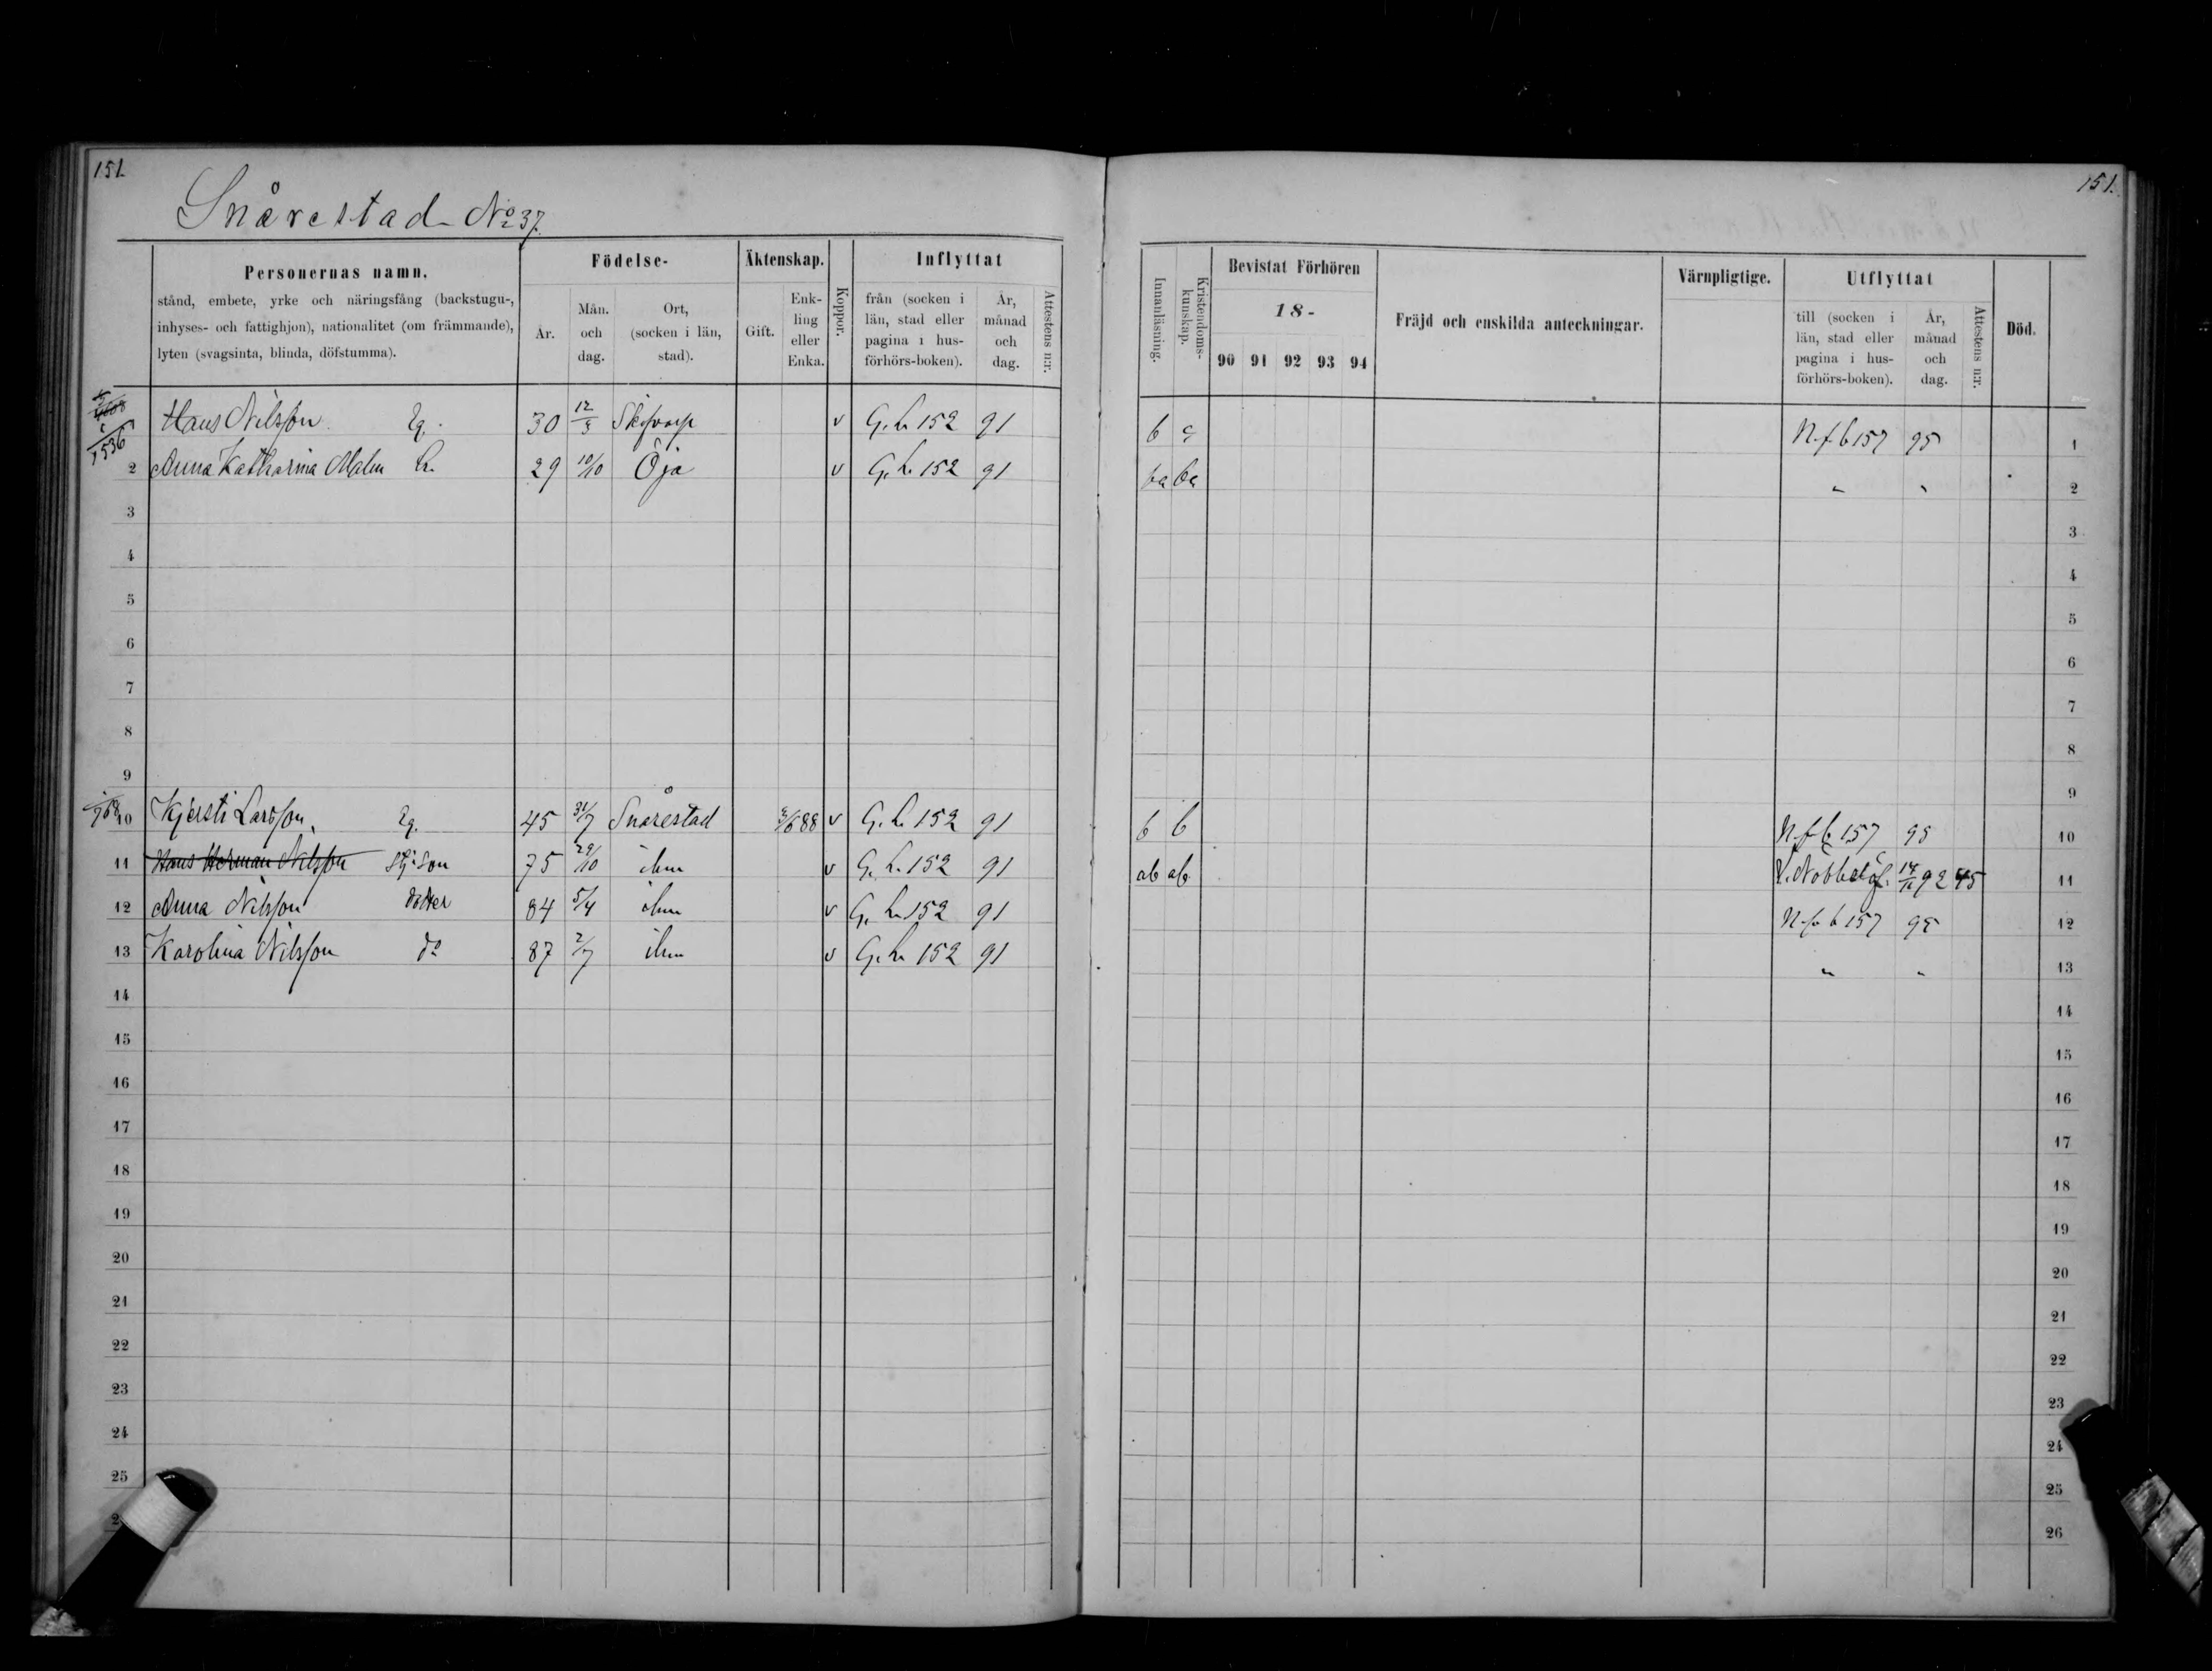 151.
151.
Snårestad No 37.
Personernas namn.
stånd, embete, yrke och näringsfång (backstugu-,
inhyses- och fattighjon), nationalitet (om främmande),
lyten (svagsinta, blinda, döfstumma).
Födelse-
År.
Mån.
och
dag.
Ort,
(socken i län,
stad).
Äktenskap.
Gift.
Enk-
ling
eller
Enka.
Koppor.
Inflyttat
från (socken i
län, stad eller
pagina i hus-
förhörs-boken).
År,
månad
och
dag.
Attestens n:r.
Innanläsning.
Kristendoms-
kunskap.
Bevistat Förhören
18-
90 91 92 93 94
Fräjd och enskilda anteckningar.
Värnpligtige.
Utflyttat
till (socken i
län, stad eller
pagina i hus-
förhörs-boken).
År,
månad
och
dag.
Attestens n:r.
Död.
1536
Hans Nilsson Eg. 30 12/3 v G. L. 152 91 b N. f. b 157 95 1
2 Anna Katharina Malm h. 29 10/10 Öja v G. L. 152 91 ba ba " " 2
3 3
4 4
5 5
6 6
7 7
8 8
9 9
10 Kjersti Larsson, Eg. 45 31/7 Snårestad v G. L. 152 91 b b N. f. b 157 95 10
11 Hans Herman Nilsson Son 75 29/10 ibm v G. L. 152 91 ab ab 92 45 11
12 Anna Nilsson dotter 84 5/4 ibm v G. L. 152 91 N. f. b 157 95 12
13 Karolina Nilsson do 87 2/7 ibm v G. L. 152 91 " " 13
14 14
15 15
16 16
17 17
18 18
19 19
20 20
21 21
22 22
23 23
24 24
25 25
26